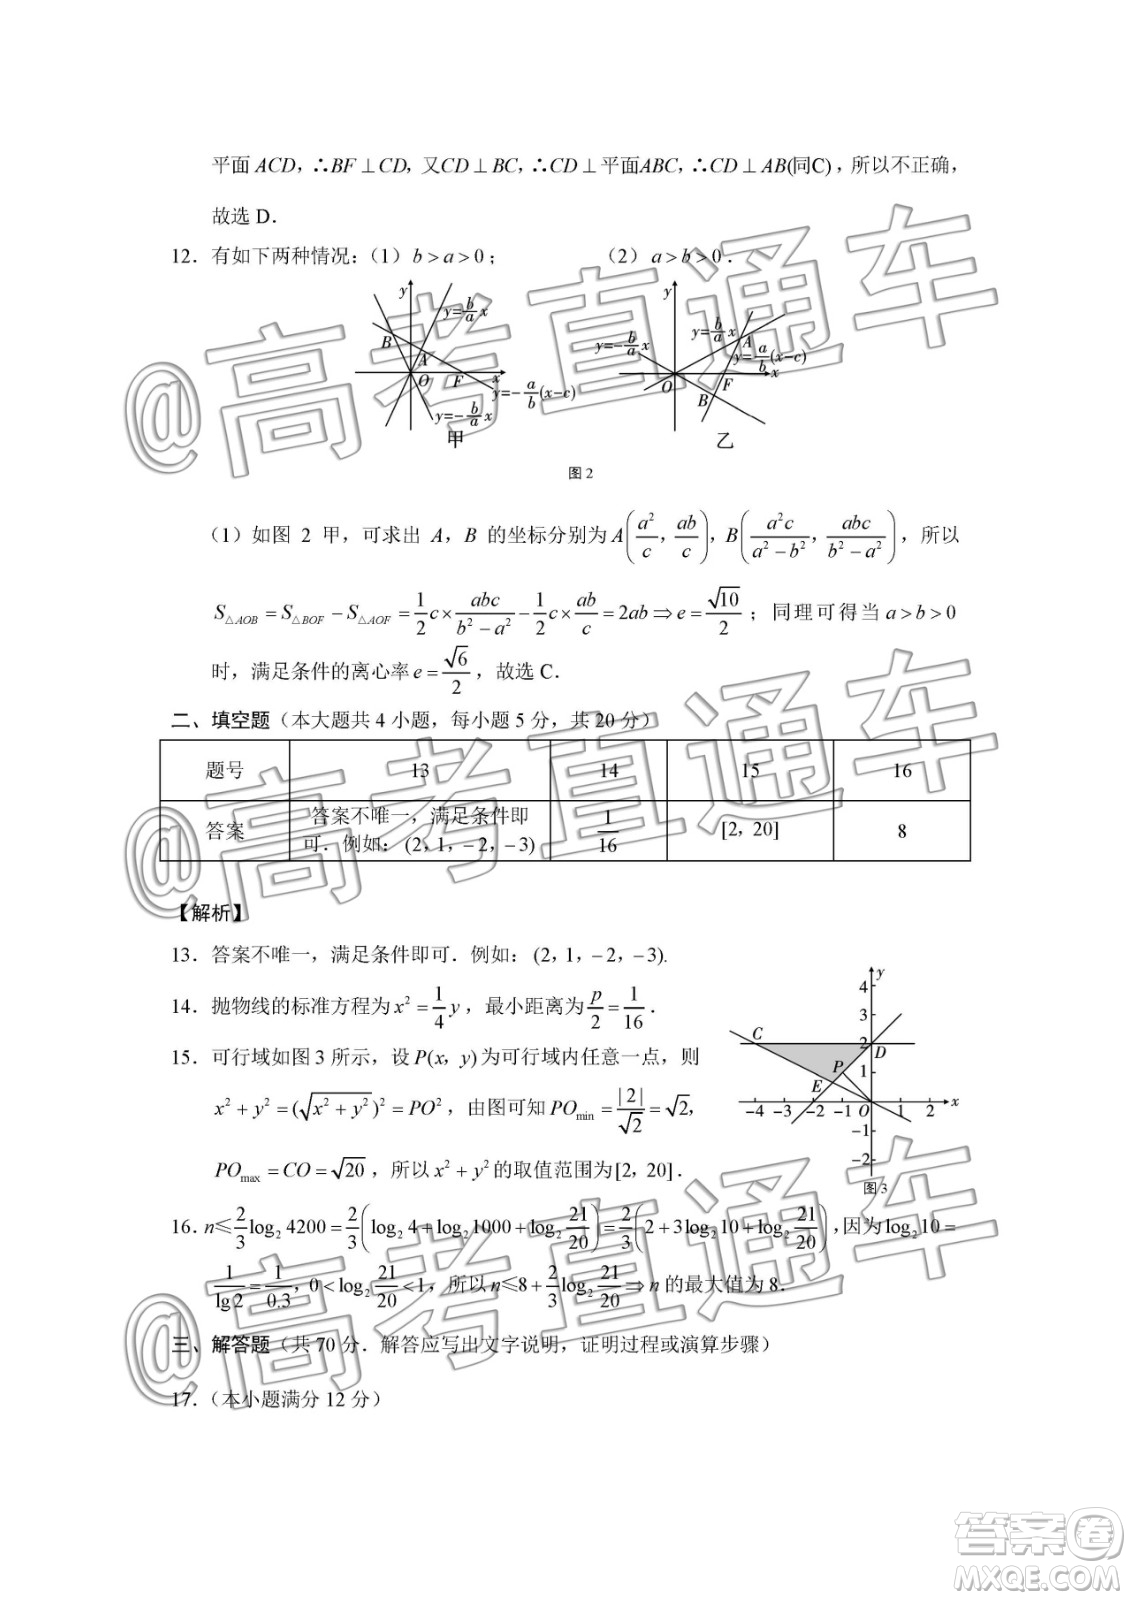 平面 ACD，∴BF⊥CD，又CD⊥BC，∴CD⊥平面ABC，∴CD⊥AB(同C)，所以不正确，
故选 D．
12．有如下两种情况：（1）b>a>0；（2）a>b>0．
y y=b/a x B A O F x y=-a/b(x-c) y=-b/a x 甲
y y=-b/a x y=b/a x A y=a/b(x-c) O F x B 乙
图 2
（1）如图 2 甲，可求出 A，B 的坐标分别为 A(a²/c，ab/c)，B(a²c/(a²-b²)，abc/(b²-a²))，所以
S△AOB = S△BOF - S△AOF = 1/2 c × abc/(b²-a²) - 1/2 c × ab/c = 2ab ⇒ e = √10/2；同理可得当 a>b>0
时，满足条件的离心率 e = √6/2，故选 C．
二、填空题（本大题共 4 小题，每小题 5 分，共 20 分）
题号 13 14 15 16
答案 答案不唯一，满足条件即可．例如：(2，1，-2，-3) 1/16 [2，20] 8
【解析】
13．答案不唯一，满足条件即可．例如：(2，1，-2，-3).
14．抛物线的标准方程为 x² = 1/4 y，最小距离为 p/2 = 1/16．
15．可行域如图 3 所示，设 P(x，y) 为可行域内任意一点，则
x² + y² = (√(x²+y²))² = PO²，由图可知 POmin = |2|/√2 = √2，
POmax = CO = √20，所以 x² + y² 的取值范围为 [2，20]．
y 4 3 2 1 C D P E -4 -3 -2 -1 O 1 2 x -1 -2
图 3
16．n ≤ 2/3 log₂4200 = 2/3(log₂4 + log₂1000 + log₂ 21/20) = 2/3(2 + 3log₂10 + log₂ 21/20)，因为 log₂10 =
1/lg2 = 1/0.3，0 < log₂ 21/20 < 1，所以 n ≤ 8 + 2/3 log₂ 21/20 ⇒ n 的最大值为 8．
三、解答题（共 70 分．解答应写出文字说明，证明过程或演算步骤）
17．（本小题满分 12 分）
@高考直通车
@高考直通车
@高考直通车
答案圈
MXQE.COM